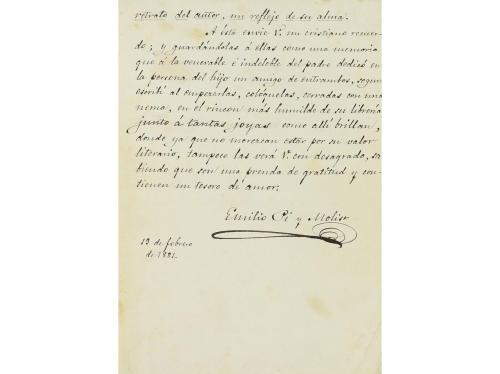 retrato del autor, un reflejo de su alma.
A ésta envíe V. un cristiano recuer-
do; y guardándolas á ellas como una memoria
que á la venerable é indeleble del padre dedicó en
la persona del hijo un amigo de entrambos, segun
escribí al empezarlas, colóquelas, cerradas con una
nema, en el rincon más humilde de su librería
junto á tantas joyas como allí brillan,
donde ya que no merezcan estar por su valor
literario, tampoco las verá V. con desagrado, sa-
biendo que son una prenda de gratitud y con-
tienen un tesoro de amor.
Emilio Pi y Molist
19 de febrero
de 1881.